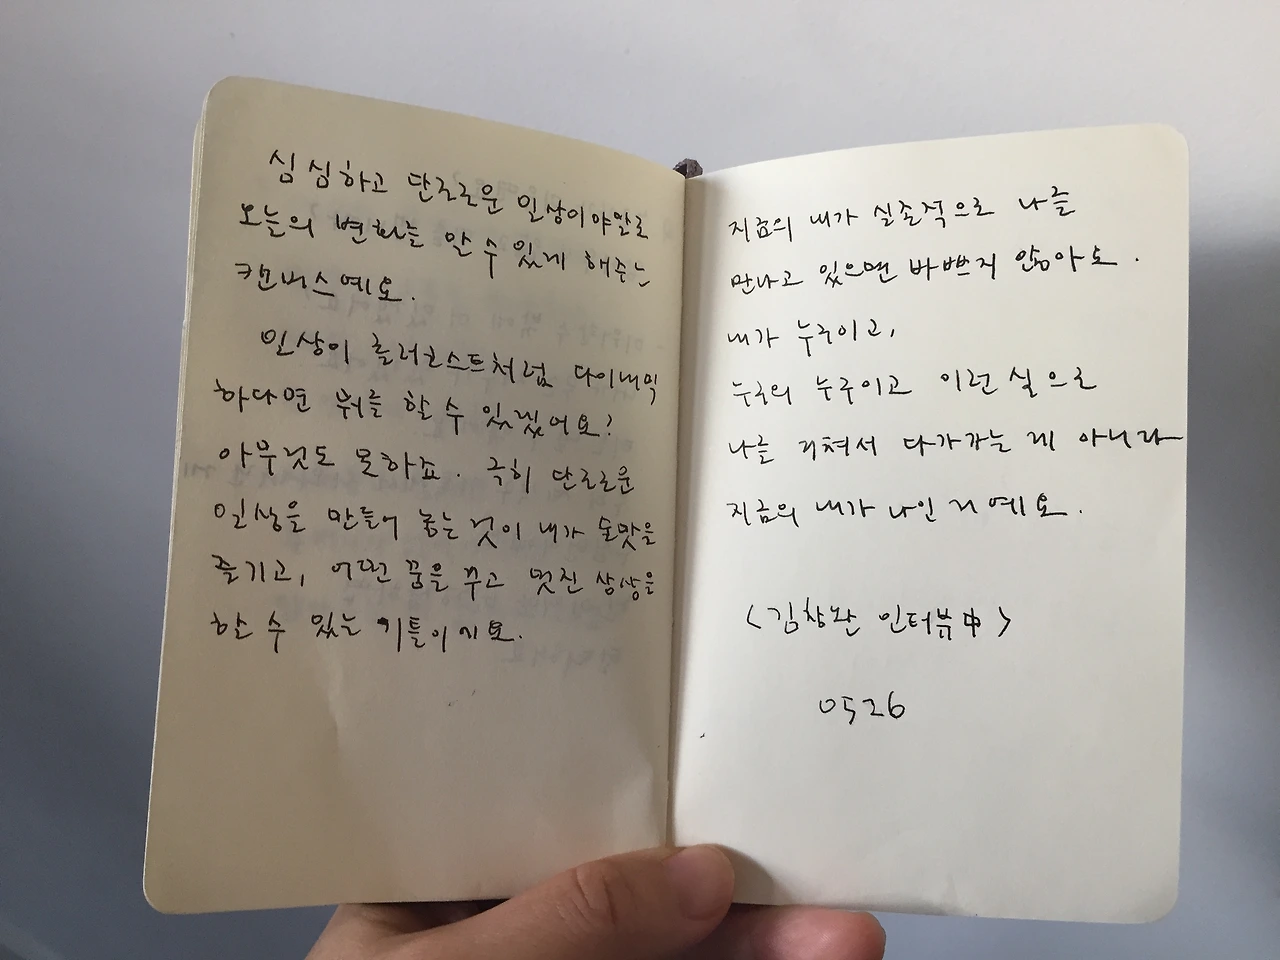 심심하고 단조로운 일상이야말로
오늘의 변화를 알 수 있게 해주는
캔버스예요.
일상이 롤러코스트처럼 다이내믹
하다면 뭐를 할 수 있겠어요?
아무것도 못하죠. 극히 단조로운
일상을 만들어 놓는 것이 내가 술맛을
즐기고, 어떤 꿈을 꾸고 멋진 상상을
할 수 있는 기틀이에요.
지금의 내가 실존적으로 나를
만나고 있으면 바쁘지 않아요.
내가 누구이고,
누구의 누구이고 이런 식으로
나를 거쳐서 다가가는 게 아니라
지금의 내가 나인 거예요.
<김창완 인터뷰中>
0526